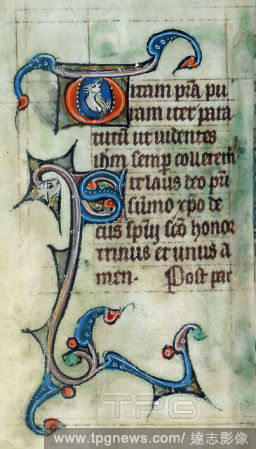 Vitam pr̄a pu
ram iter para
tutū ut uidentes
ihm semp colletem
Sit laus deo pr̄i
sūmo xp̄o de
cus sp̄ui sc̄o honor
trinus et unus a
men. Post par
TPG
www.tpgnews.com/ 達志影像